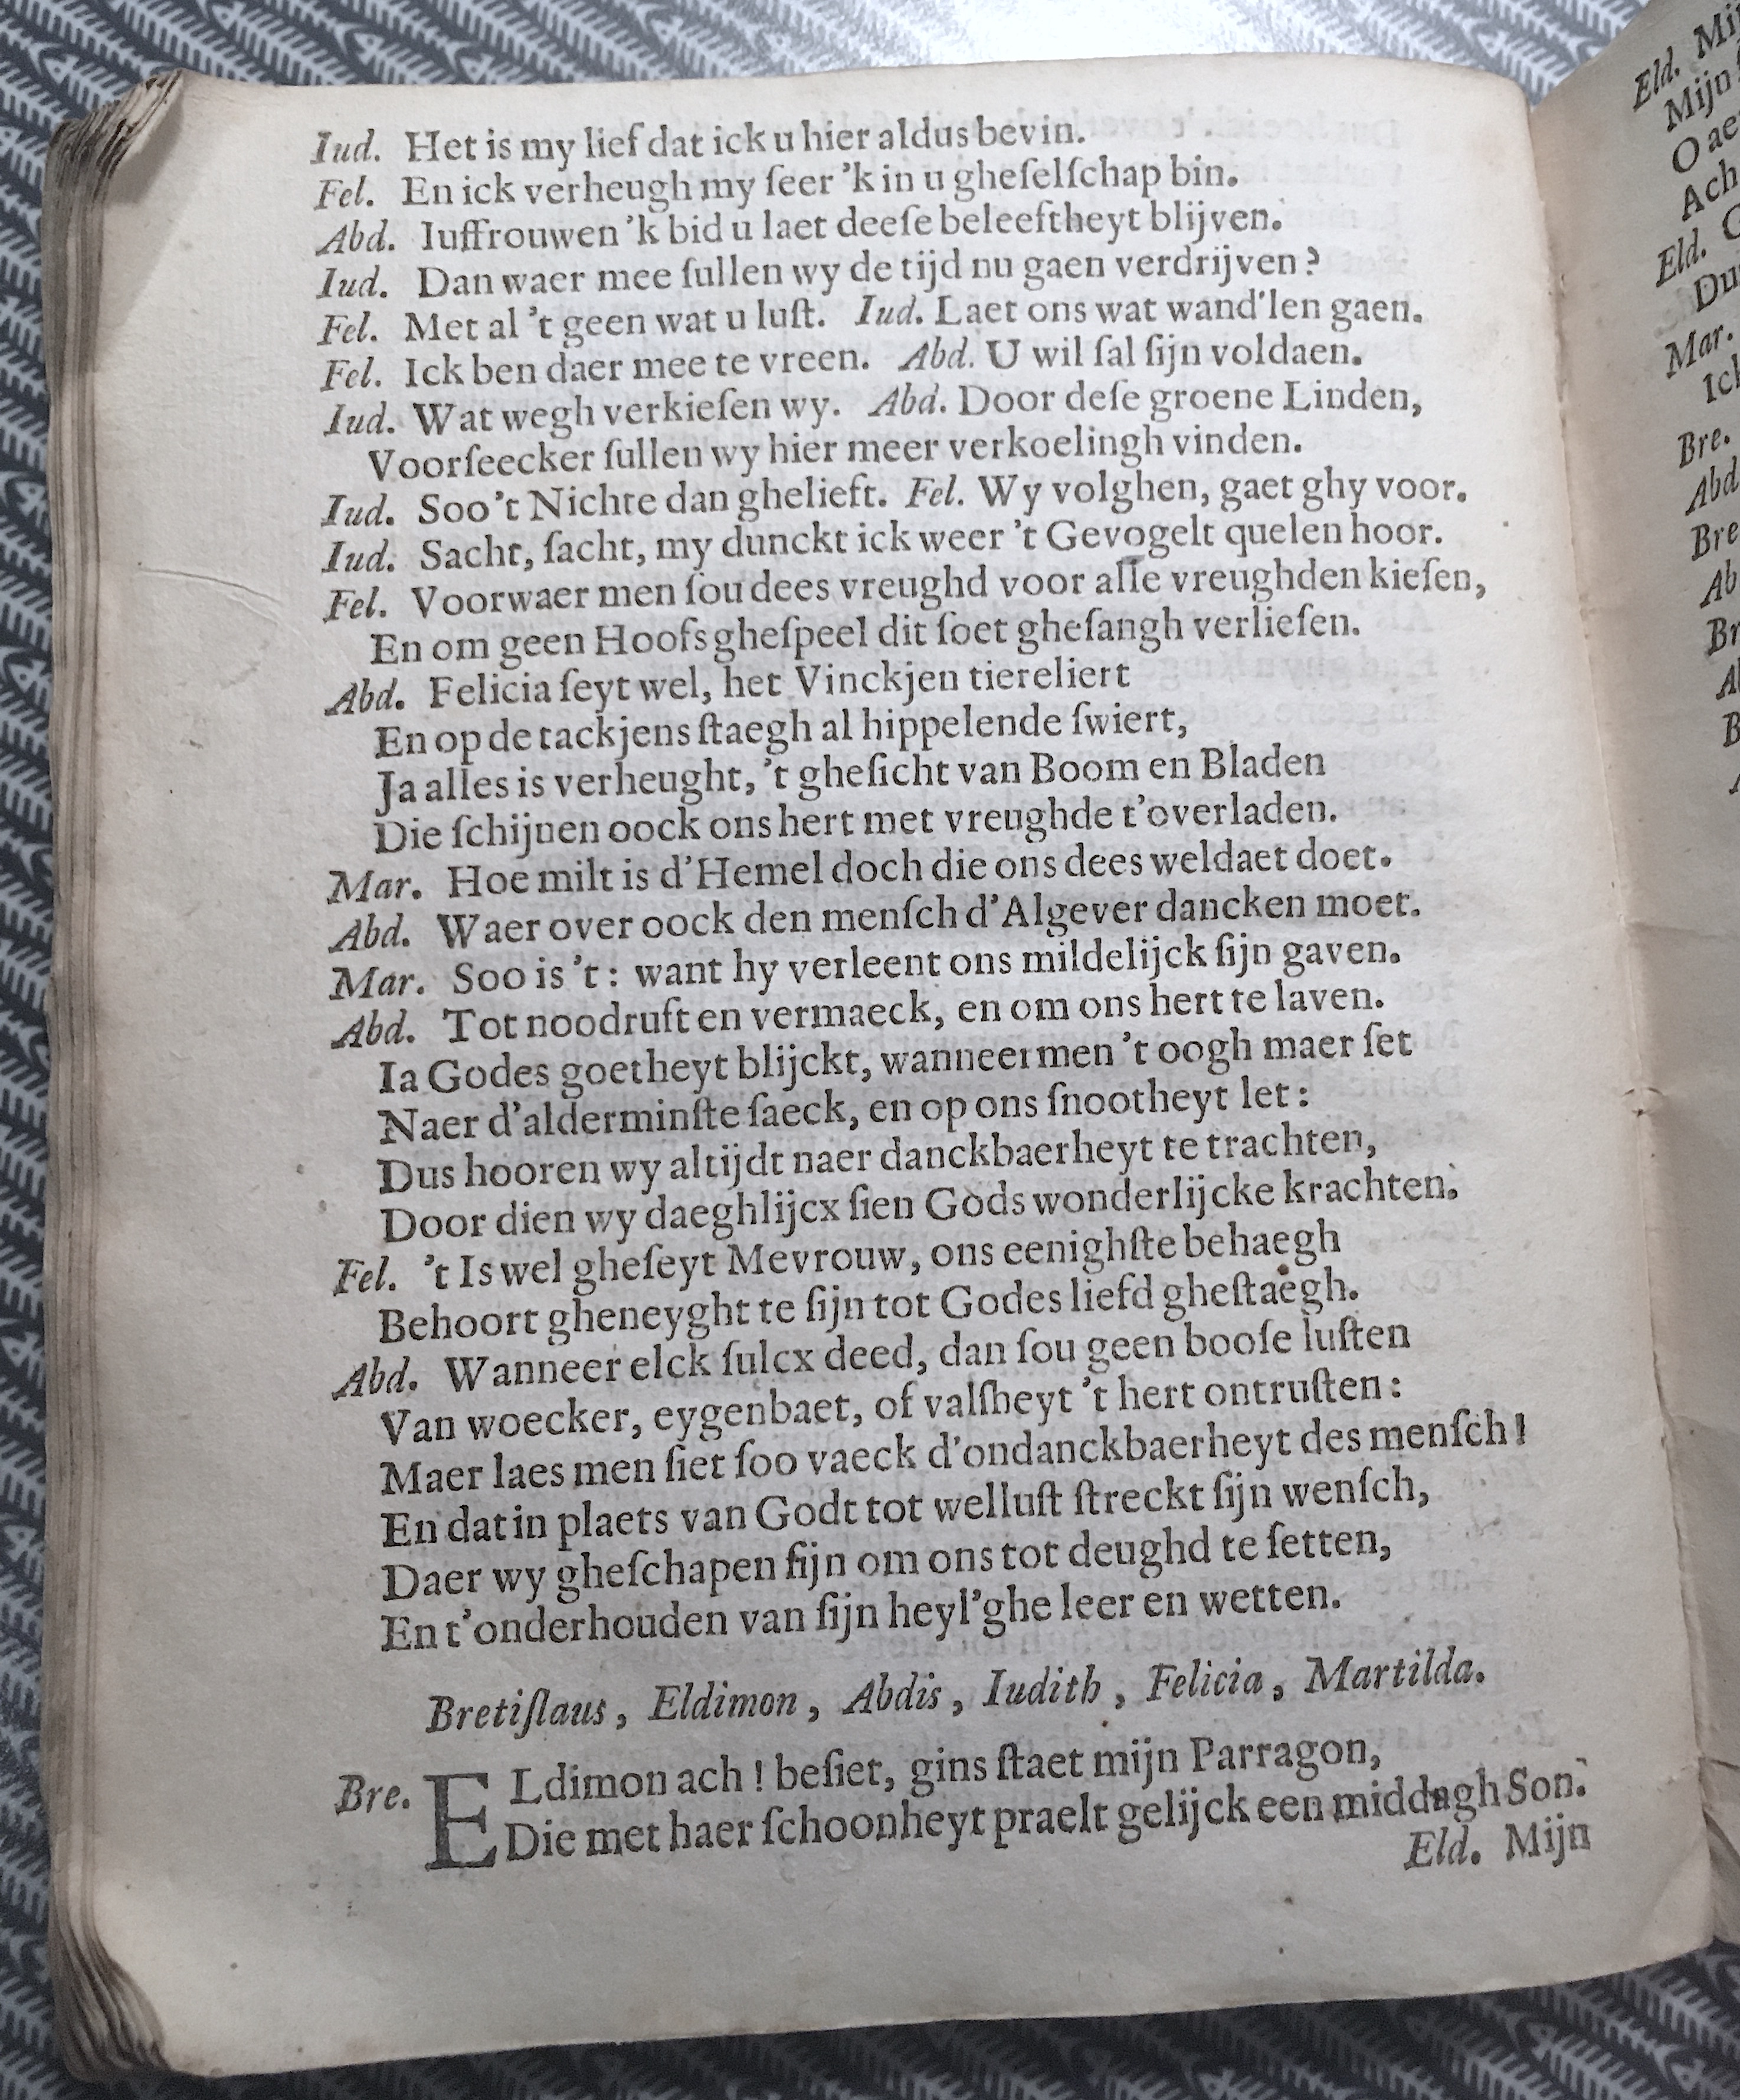 Iud. Het is my lief dat ick u hier aldus bevin.
Fel. En ick verheugh my ſeer 'k in u gheſelſchap bin.
Abd. Iuffrouwen 'k bid u laet deeſe beleeftheyt blijven.
Iud. Dan waer mee ſullen wy de tijd nu gaen verdrijven?
Fel. Met al 't geen wat u luſt. Iud. Laet ons wat wand'len gaen.
Fel. Ick ben daer mee te vreen. Abd. U wil ſal ſijn voldaen.
Iud. Wat wegh verkieſen wy. Abd. Door deſe groene Linden,
Voorſeecker ſullen wy hier meer verkoelingh vinden.
Iud. Soo 't Nichte dan ghelieft. Fel. Wy volghen, gaet ghy voor.
Iud. Sacht, ſacht, my dunckt ick weer 't Gevogelt quelen hoor.
Fel. Voorwaer men ſou dees vreughd voor alle vreughden kieſen,
En om geen Hoofs gheſpeel dit ſoet gheſangh verlieſen.
Abd. Felicia ſeyt wel, het Vinckjen tiereliert
En op de tackjens ſtaegh al hippelende ſwiert,
Ja alles is verheught, 't gheſicht van Boom en Bladen
Die ſchijnen oock ons hert met vreughde t'overladen.
Mar. Hoe milt is d'Hemel doch die ons dees weldaet doet.
Abd. Waer over oock den menſch d'Algever dancken moet.
Mar. Soo is 't: want hy verleent ons mildelijck ſijn gaven.
Abd. Tot noodruft en vermaeck, en om ons hert te laven.
Ia Godes goetheyt blijckt, wanneer men 't oogh maer ſet
Naer d'alderminſte ſaeck, en op ons ſnootheyt let:
Dus hooren wy altijdt naer danckbaerheyt te trachten,
Door dien wy daeghlijcx ſien Gods wonderlijcke krachten.
Fel. 't Is wel gheſeyt Mevrouw, ons eenighſte behaegh
Behoort gheneyght te ſijn tot Godes liefd gheſtaegh.
Abd. Wanneer elck ſulcx deed, dan ſou geen booſe luſten
Van woecker, eygenbaet, of valſheyt 't hert ontruſten:
Maer laes men ſiet ſoo vaeck d'ondanckbaerheyt des menſch!
En dat in plaets van Godt tot welluſt ſtreckt ſijn wenſch,
Daer wy gheſchapen ſijn om ons tot deughd te ſetten,
En t'onderhouden van ſijn heyl'ghe leer en wetten.
Bretiſlaus, Eldimon, Abdis, Iudith, Felicia, Martilda.
Bre. ELdimon ach! beſiet, gins ſtaet mijn Parragon,
Die met haer ſchoonheyt praelt gelijck een middagh Son.
Eld. Mijn
Eld.
Mijn
O
Ach
Eld.
Mar.
Bre.
Abd
Bre